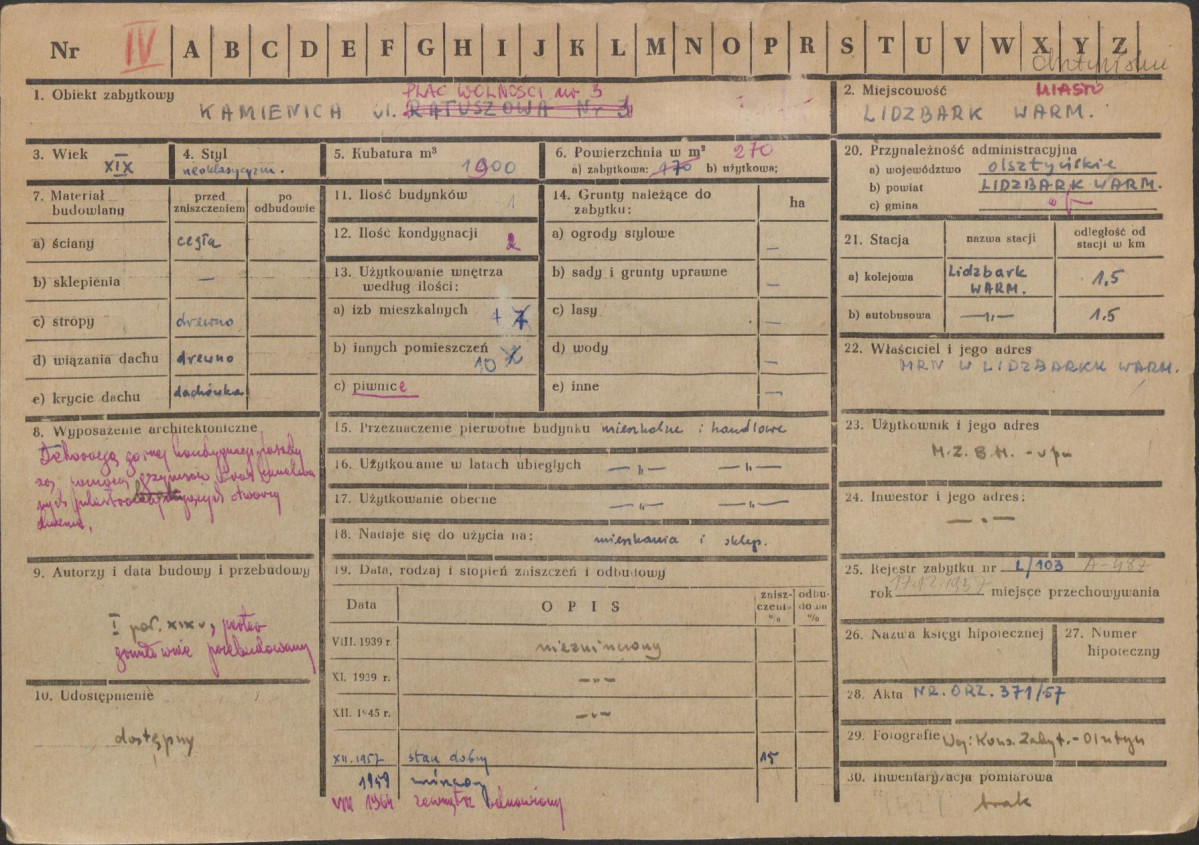 Nr IV A B C D E F G H I J K L M N O P R S T U V W X Y Z
1. Obiekt zabytkowy
PLAC WOLNOŚCI nr 3
KAMIENICA ul. RATUSZOWA Nr 3
2. Miejscowość MIASTO
LIDZBARK WARM.
3. Wiek
XIX
4. Styl
neoklasycyzm.
5. Kubatura m³
1900
6. Powierzchnia w m² 270
a) zabytkowa: 170 b) użytkowa:
20. Przynależność administracyjna
a) województwo olsztyńskie
b) powiat LIDZBARK WARM.
c) gmina
7. Materiał budowlany
przed zniszczeniem
po odbudowie
a) ściany cegła
b) sklepienia —
c) stropy drewno
d) wiązania dachu drewno
e) krycie dachu dachówka
11. Ilość budynków 1
12. Ilość kondygnacji 2
13. Użytkowanie wnętrza
według ilości:
a) izb mieszkalnych 7
b) innych pomieszczeń 10
c) piwnice
14. Grunty należące do
zabytku: ha
a) ogrody stylowe —
b) sady i grunty uprawne —
c) lasy —
d) wody —
e) inne —
21. Stacja
nazwa stacji
odległość od
stacji w km
a) kolejowa Lidzbark WARM. 1,5
b) autobusowa —„— 1.5
22. Właściciel i jego adres
MRN W LIDZBARKU WARM.
8. Wyposażenie architektoniczne
Dekoracja górnej kondygnacji fasady
za pomocą gzymsów oraz
15. Przeznaczenie pierwotne budynku mieszkalne i handlowe
16. Użytkowanie w latach ubiegłych —„— —„—
17. Użytkowanie obecne —„— —„—
18. Nadaje się do użycia na: mieszkania i sklep.
23. Użytkownik i jego adres
M.Z.B.M.
24. Inwestor i jego adres:
— „ —
9. Autorzy i data budowy i przebudowy
I poł. XIX w, parter
gruntownie przebudowany
10. Udostępnienie
dostępny
19. Data, rodzaj i stopień zniszczeń i odbudowy
Data
OPIS
zniszczeni %
odbudowa %
VIII. 1939 r. niezniszczony
XI. 1939 r. —„—
XII. 1945 r. —„—
XII. 1957 stan dobry 15
1959
VIII 1964 zewnątrz odnowiony
25. Rejestr zabytku nr L/103 A-487
rok 17.12.1957 miejsce przechowywania
26. Nazwa księgi hipotecznej
27. Numer
hipoteczny
28. Akta NR. ORZ. 371/57
29. Fotografie Woj. Kons. Zabyt. - Olsztyn
30. Inwentaryzacja pomiarowa
brak